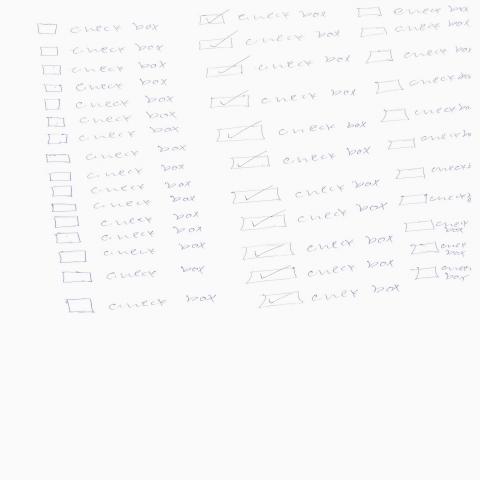 check box
check box
check box
check box
check box
check box
check box
check box
check box
check box
check box
check box
check box
check box
check box
check box
check box
check box
check box
check box
check box
check box
check box
check box
check box
check box
check box
check box
check box
check box
check box
check bo
check b
check
check
check
box
check
box
check
box